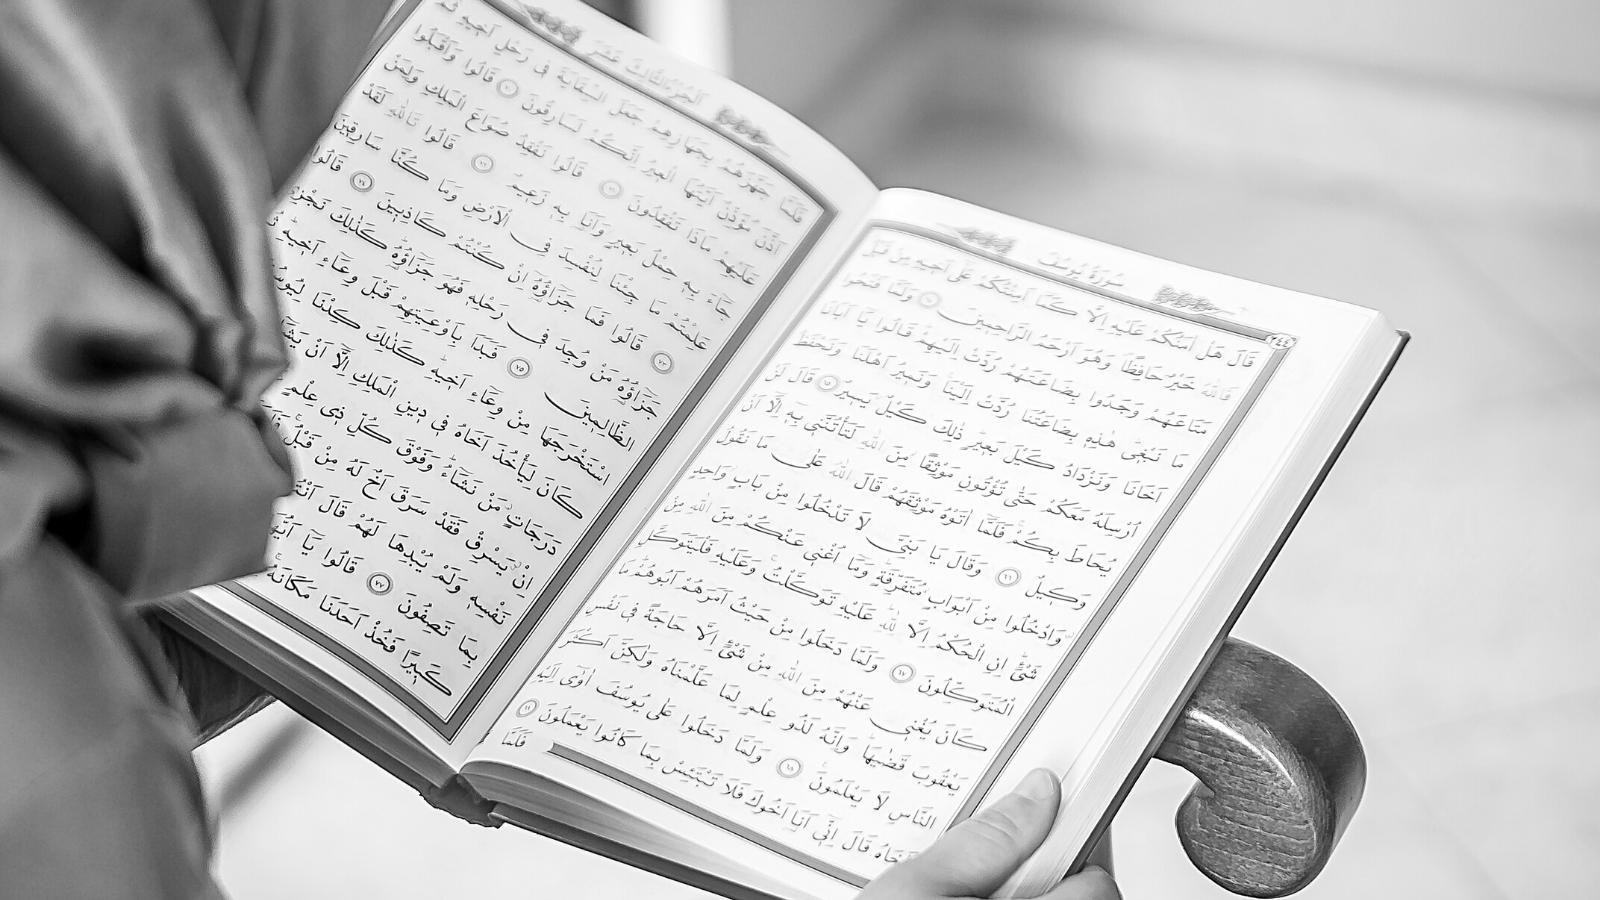 سُورَةُ يُوسُفَ
قَالَ هَلْ اٰمَنُكُمْ عَلَيْهِ اِلَّا كَمَٓا اَمِنْتُكُمْ عَلٰٓى اَخ۪يهِ مِنْ قَبْلُ
فَاللّٰهُ خَيْرٌ حَافِظًا وَهُوَ اَرْحَمُ الرَّاحِم۪ينَ ٦٤ وَلَمَّا فَتَحُوا
مَتَاعَهُمْ وَجَدُوا بِضَاعَتَهُمْ رُدَّتْ اِلَيْهِمْ قَالُوا يَٓا اَبَانَا
مَا نَبْغ۪ي هٰذِه۪ بِضَاعَتُنَا رُدَّتْ اِلَيْنَا وَنَم۪يرُ اَهْلَنَا وَنَحْفَظُ
اَخَانَا وَنَزْدَادُ كَيْلَ بَع۪يرٍ ذٰلِكَ كَيْلٌ يَس۪يرٌ ٦٥ قَالَ لَنْ
اُرْسِلَهُ مَعَكُمْ حَتّٰى تُؤْتُونِ مَوْثِقًا مِنَ اللّٰهِ لَتَأْتُنَّن۪ي بِه۪ٓ اِلَّٓا اَنْ
يُحَاطَ بِكُمْ فَلَمَّٓا اٰتَوْهُ مَوْثِقَهُمْ قَالَ اللّٰهُ عَلٰى مَا نَقُولُ
وَك۪يلٌ ٦٦ وَقَالَ يَا بَنِيَّ لَا تَدْخُلُوا مِنْ بَابٍ وَاحِدٍ
وَادْخُلُوا مِنْ اَبْوَابٍ مُتَفَرِّقَةٍ وَمَٓا اُغْن۪ي عَنْكُمْ مِنَ اللّٰهِ مِنْ
شَيْءٍ اِنِ الْحُكْمُ اِلَّا لِلّٰهِ عَلَيْهِ تَوَكَّلْتُ وَعَلَيْهِ فَلْيَتَوَكَّلِ
الْمُتَوَكِّلُونَ ٦٧ وَلَمَّا دَخَلُوا مِنْ حَيْثُ اَمَرَهُمْ اَبُوهُمْ مَا
كَانَ يُغْن۪ي عَنْهُمْ مِنَ اللّٰهِ مِنْ شَيْءٍ اِلَّا حَاجَةً ف۪ي نَفْسِ
يَعْقُوبَ قَضٰيهَا وَاِنَّهُ لَذُو عِلْمٍ لِمَا عَلَّمْنَاهُ وَلٰكِنَّ اَكْثَرَ
النَّاسِ لَا يَعْلَمُونَ ٦٨ وَلَمَّا دَخَلُوا عَلٰى يُوسُفَ اٰوٰٓى اِلَيْهِ
اَخَاهُ قَالَ اِنّ۪ٓي اَنَا۬ اَخُوكَ فَلَا تَبْتَئِسْ بِمَا كَانُوا يَعْمَلُونَ ٦٩
فَلَمَّا
اَلْجُزْءُ الثَّالِثَ عَشَرَ
فَلَمَّا جَهَّزَهُمْ بِجَهَازِهِمْ جَعَلَ السِّقَايَةَ ف۪ي رَحْلِ اَخ۪يهِ ثُمَّ
اَذَّنَ مُؤَذِّنٌ اَيَّتُهَا الْع۪يرُ اِنَّكُمْ لَسَارِقُونَ ٧٠ قَالُوا وَاَقْبَلُوا
عَلَيْهِمْ مَاذَا تَفْقِدُونَ ٧١ قَالُوا نَفْقِدُ صُوَاعَ الْمَلِكِ وَلِمَنْ
جَٓاءَ بِه۪ حِمْلُ بَع۪يرٍ وَاَنَا۬ بِه۪ زَع۪يمٌ ٧٢ قَالُوا تَاللّٰهِ لَقَدْ
عَلِمْتُمْ مَا جِئْنَا لِنُفْسِدَ فِي الْاَرْضِ وَمَا كُنَّا سَارِق۪ينَ
٧٣ قَالُوا فَمَا جَزَٓاؤُ۬هُٓ اِنْ كُنْتُمْ كَاذِب۪ينَ ٧٤ قَالُوا
جَزَٓاؤُ۬هُ مَنْ وُجِدَ ف۪ي رَحْلِه۪ فَهُوَ جَزَٓاؤُ۬هُ كَذٰلِكَ نَجْزِي
الظَّالِم۪ينَ ٧٥ فَبَدَاَ بِاَوْعِيَتِهِمْ قَبْلَ وِعَٓاءِ اَخ۪يهِ
اسْتَخْرَجَهَا مِنْ وِعَٓاءِ اَخ۪يهِ كَذٰلِكَ كِدْنَا لِيُوسُفَ
كَانَ لِيَأْخُذَ اَخَاهُ ف۪ي د۪ينِ الْمَلِكِ اِلَّٓا اَنْ
دَرَجَاتٍ مَنْ نَشَٓاءُ وَفَوْقَ كُلِّ ذ۪ي عِلْمٍ
اِنْ يَسْرِقْ فَقَدْ سَرَقَ اَخٌ لَهُ مِنْ قَبْلُ
نَفْسِه۪ وَلَمْ يُبْدِهَا لَهُمْ قَالَ
بِمَا تَصِفُونَ ٧٧ قَالُوا يَٓا
كَب۪يرًا فَخُذْ اَحَدَنَا مَكَانَهُ